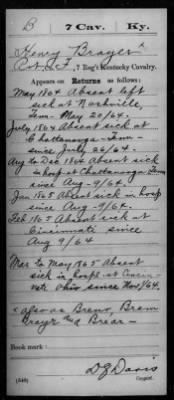 B | 7 Cav. | Ky.
Henry Brayer x
Pvt, Co F, 7 Reg't Kentucky Cavalry.
Appears on Returns as follows:
May 1864 Absent left
sick at Nashville,
Tenn - May 20/64.
July 1864 Absent sick at
Chattanooga - Tenn -
since July 26/64.
Aug to Dec 1864 Absent sick
in hosp at Chattanooga Tenn
since Aug - 9/64.
Jan 1865 Absent sick in hosp
since Aug - 9/64.
Feb 1865 Absent sick at
Cincinnati since
Aug 9/64
Mar to May 1865 Absent
sick in hospl at Cincin-
nati Ohio since Nov, 1/64.
x also as Breno, Brem
Brayr and Brear -
Book mark:
(546)
D Z Davis
Copyist.